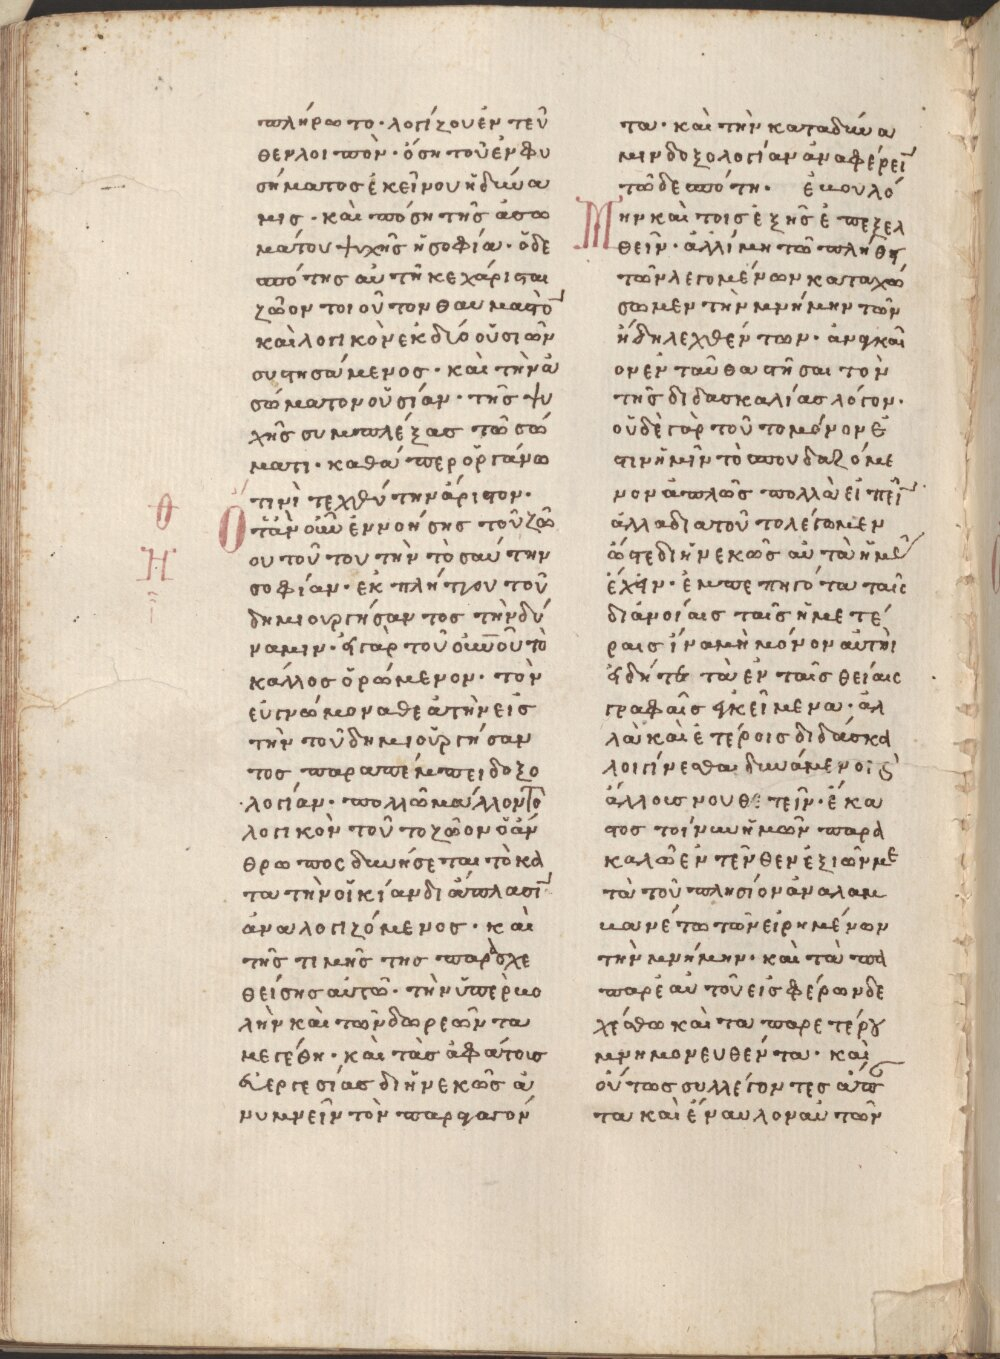 πλήρωτο· λογίζου ἐντεῦ
θεν λοιπὸν· ὅση τοῦ ἐμφυ
σήματος ἐκείνου ἡ δύνα
μις· καὶ πόση τῆς ἀσω
μάτου ψυχῆς ἡ σοφία· ὁ δε
σπότης αὐτῆ κεχάρισται
ζῶον τοιοῦτον θαυμαστὸ
καὶ λογικὸν ἐκ δύο οὐσιῶν
συστησάμενος· καὶ τὴν ἀ
σώματον οὐσίαν· τῆς ψυ
χῆς συμπλέξας τῶ σώ
ματι· καθάπερ ὀργάνω
τινὶ τεχνίτην ἄριστον·
Ὅταν οὖν ἐννοήσης τοῦ ζώ
ου τούτου τὴν τοσαύτην
σοφίαν· ἐκπλήττου τοῦ
δημιουργήσαντος τὴν δύ
ναμιν· εἰ γὰρ τοῦ οὐνοῦ τὸ
κάλλος ὁρώμενον· τὸν
εὐγνώμονα θεατὴν εἰς
τὴν τοῦ δημιουργήσαν
τος παραπέμπει δοξο
λογίαν· πολλῶ μάλλον τὸ
λογικὸν τοῦτο ζῶον ὁ ἄν
θρωπος δυνήσεται τὸ κα
τὰ τὴν οἰκίαν διάπλασι
ἀναλογιζόμενος· καὶ
τῆς τιμῆς τῆς παρασχε
θείσης αὐτῶ· τὴν ὑπερβο
λὴν καὶ τῶν δωρεῶν τὰ
μεγέθη· καὶ τὰς ἀφάτους
εὐεργεσίας διηνεκῶς ἀ
νυμνεῖν τὸν παραγαγόν
θ
Η
τα· καὶ τὴν κατὰ δύνα
μιν δοξολογίαν ἀναφέρει
τῶ δεσπότη· ἐβουλό
Μην καὶ τοῖς ἑξῆς ἐπεξελ
θεῖν· ἀλλ' ἵνα μη τῶ πλήθει
τῶν λεγομένων καταχώ
σωμεν τὴν μνήμην τῶν
ἤδη λεχθέντων· ἀναγκαῖ
ον ἐνταῦθα στῆσαι τὸν
τῆς διδασκαλίας λόγον·
οὐδὲ γὰρ τοῦτο μόνον ἐ
στιν ἡμῖν τὸ σπουδαζόμε
νον ἁπλῶς πολλὰ εἰπεῖ
ἀλλὰ διὰ τοῦτο λέγωμεν
ὥστε διηνεκῶς αὐτὰ ἡμᾶς
ἔχειν· ἐμπεπηγότα ταῖς
διανοίαις ταῖς ἡμετέ
ραις ἵνα μὴ μόνον αὐτοὶ
εἰδῆτε τὰ ἐν ταῖς θείαις
γραφαῖς ἐγκείμενα· ἀλ
λὰ καὶ ἑτέροις διδάσκα
λοι γίνεσθαι δυνάμενοι κ
ἄλλους νουθετεῖν· ἕκα
στος τοίνυν ἡμῶν παρα
καλῶ ἐντεῦθεν ἐξιὼν με
τὰ τοῦ πλησίον ἀναλαμ
βανέτω τῶν εἰρημένων
τὴν μνήμην· καὶ τὰ πα
παρ ἑαυτοῦ εἰσφέρων δε
χέσθω καὶ τὰ παρ ἑτέρου
μνημονευθέντα· καὶ
οὕτως συλλέγοντες ἅπα
τα καὶ ἔναυλον αὐτῶν